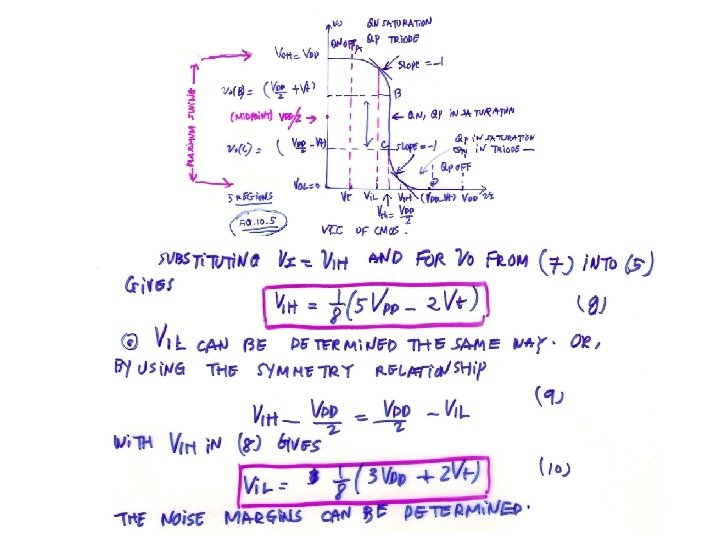 vo
QN SATURATION
QN OFF A QP TRIODE
VOH = VDD
SLOPE = -1
vo(B) = (VDD/2 + Vt)
B
MAXIMUM SWING
(MIDPOINT) VDD/2
QN, QP IN SATURATION
vo(C) = (VDD/2 - Vt)
C
SLOPE = -1
QP IN SATURATION
IN TRIODE
QP OFF
VOL = 0
5 REGIONS
Vt VIL VIH (VDD-Vt) VDD vI
Vth = VDD/2
FIG. 10.5
VTC OF CMOS.
SUBSTITUTING VI = VIH AND FOR VO FROM (7) INTO (5)
GIVES
VIH = 1/8 (5VDD - 2Vt) (8)
VIL CAN BE DETERMINED THE SAME WAY. OR,
BY USING THE SYMMETRY RELATIONSHIP
VIH - VDD/2 = VDD/2 - VIL (9)
WITH VIH IN (8) GIVES
VIL = 1/8 (3VDD + 2Vt) (10)
THE NOISE MARGINS CAN BE DETERMINED.